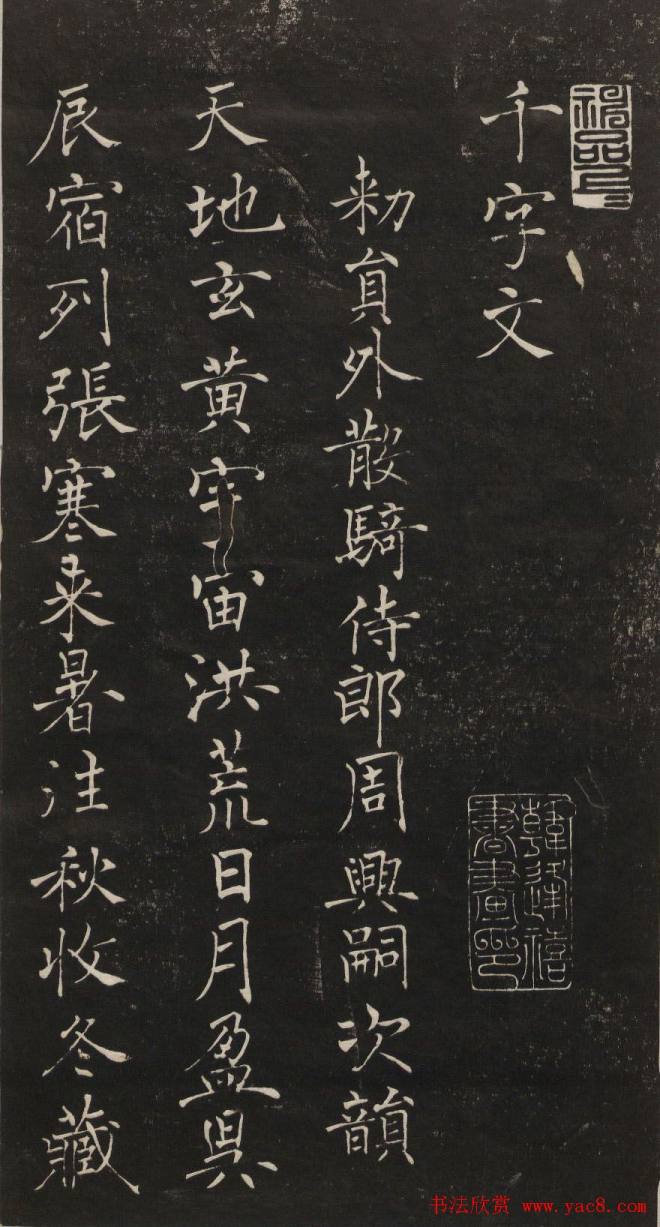 千字文
韓逢禧
書畫印
勑貟外散騎侍郎周興嗣次韻
天地玄黄宇宙洪荒日月盈昃
辰宿列張寒来暑往秋收冬藏
书法欣赏 www.yac8.com